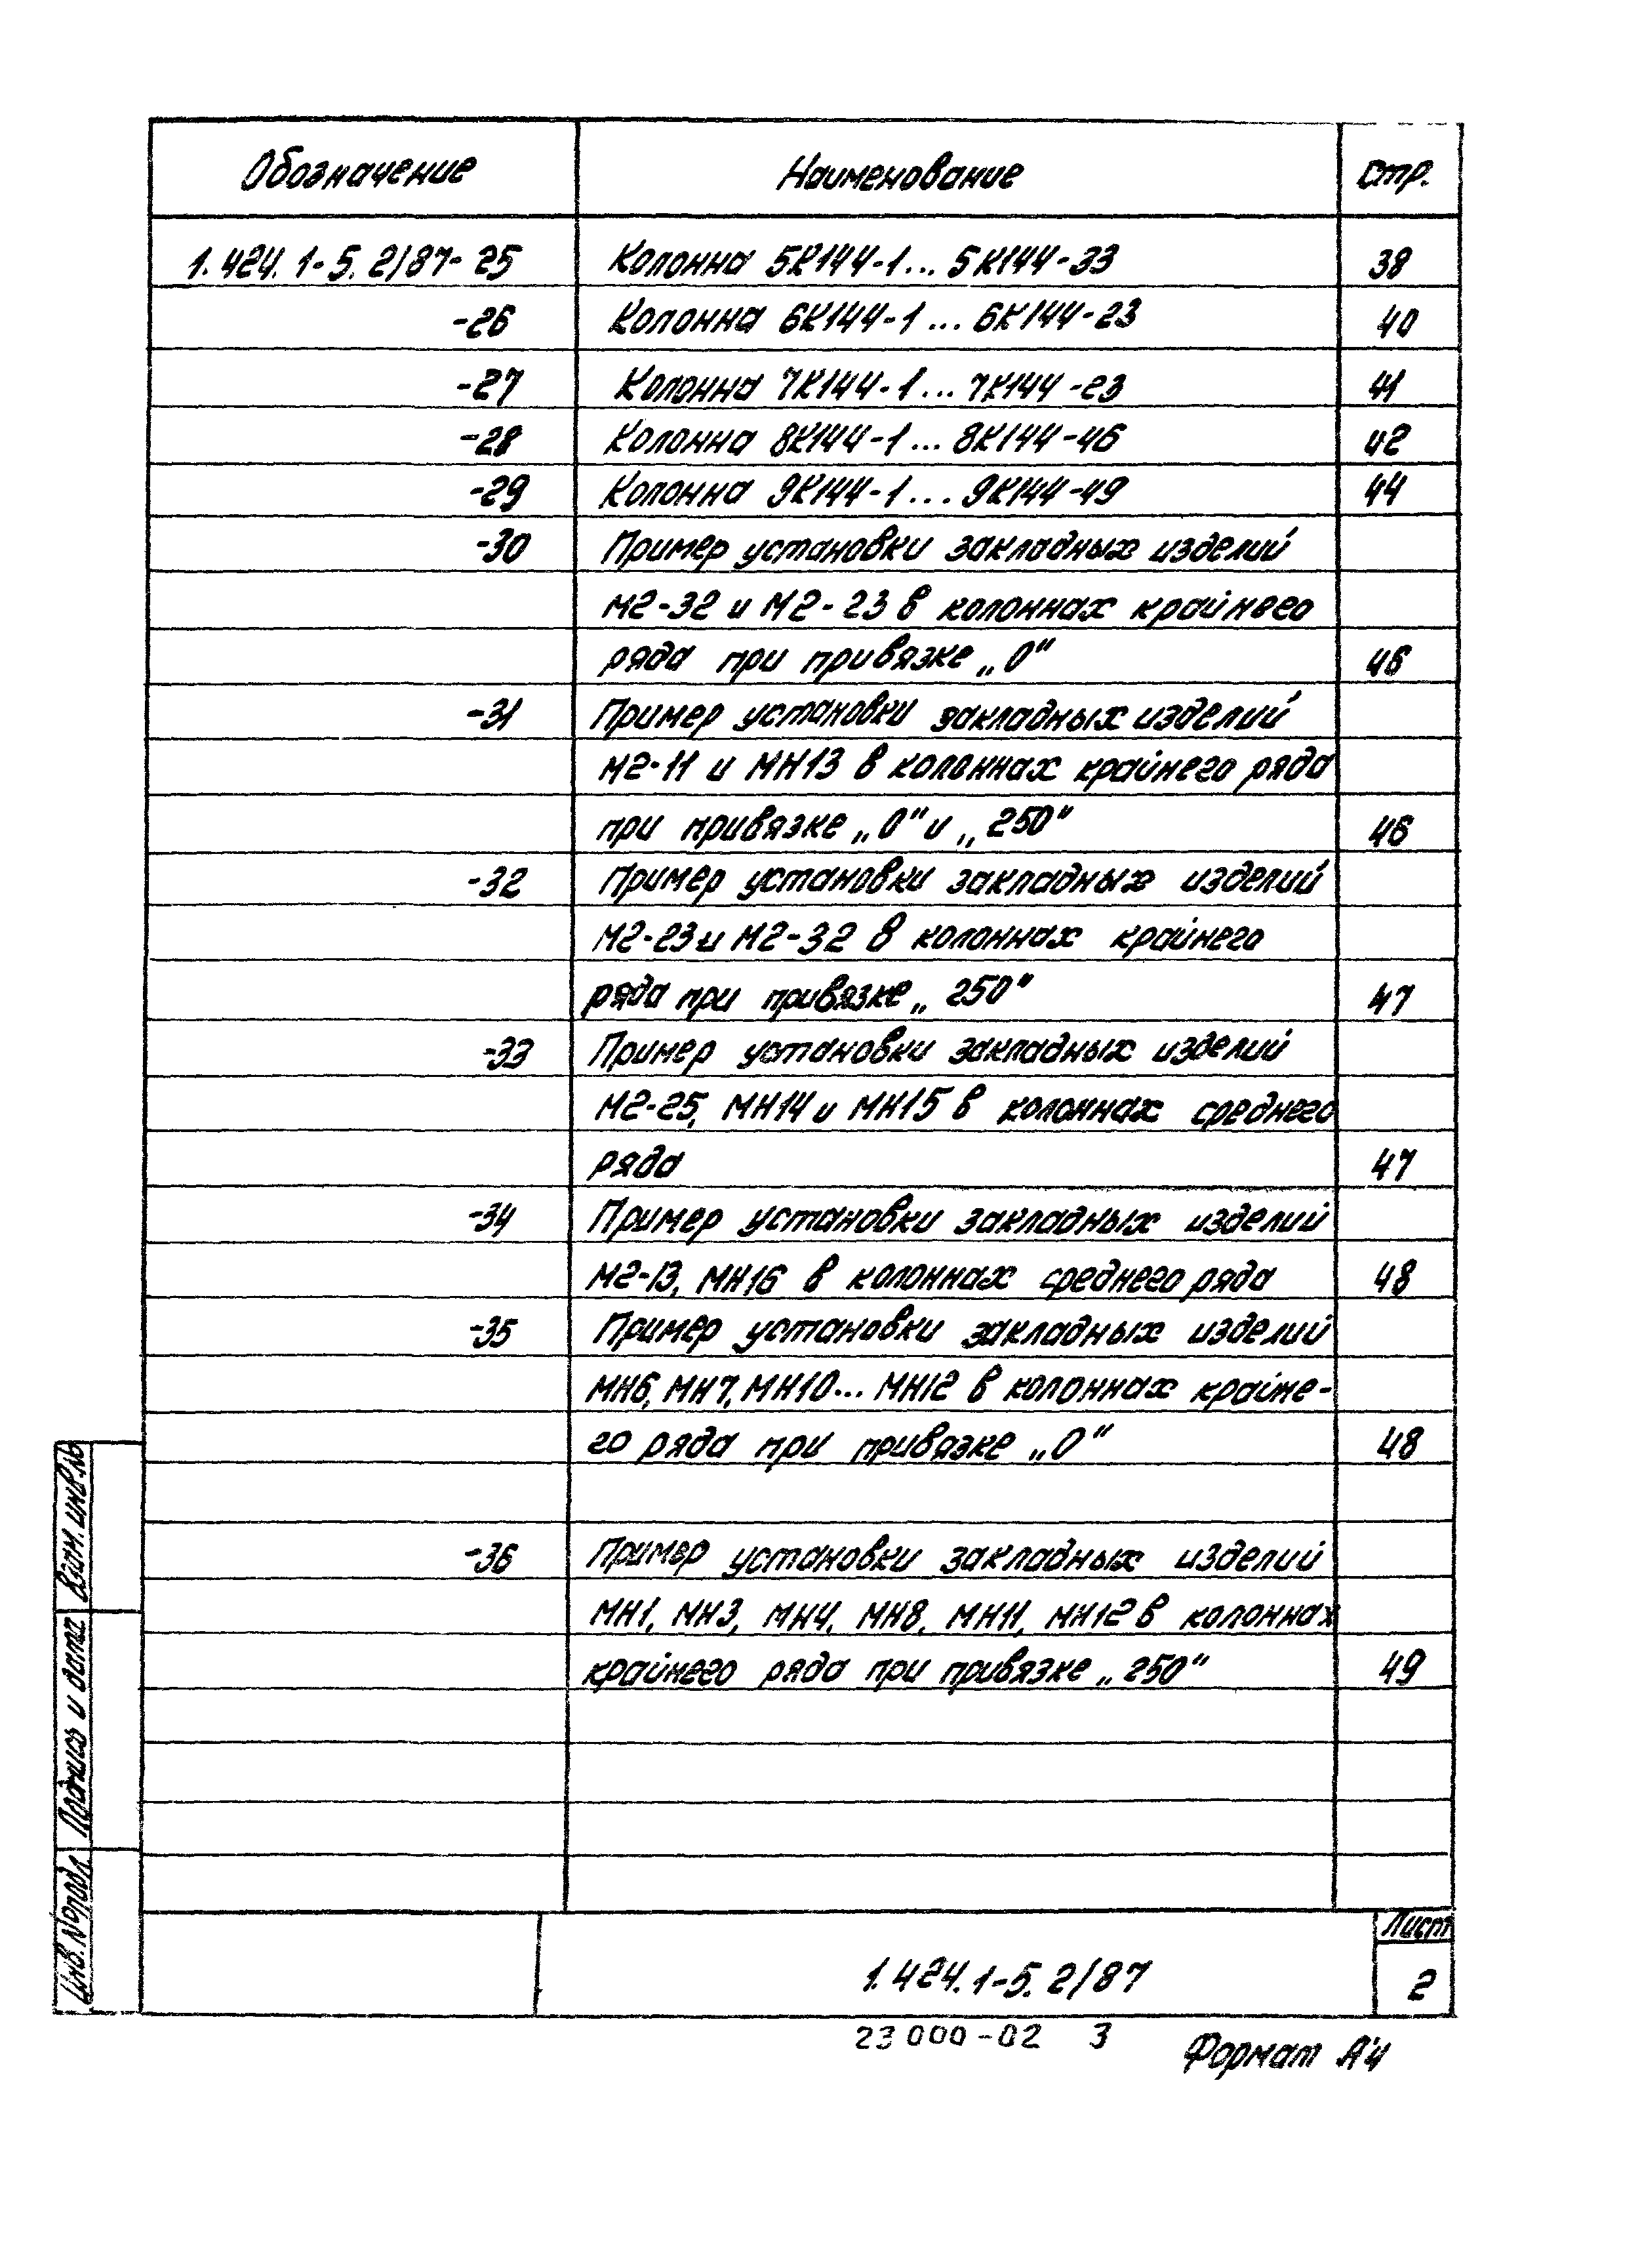 Обозначение Наименование стр.
1.424.1-5.2/87-25 Колонна 5К144-1...5К144-33 38
-26 Колонна 6К144-1...6К144-23 40
-27 Колонна 7К144-1...7К144-23 41
-28 Колонна 8К144-1...8К144-46 42
-29 Колонна 9К144-1...9К144-49 44
-30 Пример установки закладных изделий
М2-32 и М2-23 в колоннах крайнего
ряда при привязке „0" 46
-31 Пример установки закладных изделий
М2-11 и МН13 в колоннах крайнего ряда
при привязке „0" и „250" 46
-32 Пример установки закладных изделий
М2-23 и М2-32 в колоннах крайнего
ряда при привязке „250" 47
-33 Пример установки закладных изделий
М2-25, МН14 и МН15 в колоннах среднего
ряда 47
-34 Пример установки закладных изделий
М2-13, МН16 в колоннах среднего ряда 48
-35 Пример установки закладных изделий
МН6, МН7, МН10...МН12 в колоннах крайне-
го ряда при привязке „0" 48
-36 Пример установки закладных изделий
МН1, МН3, МН4, МН8, МН11, МН12 в колоннах
крайнего ряда при привязке „250" 49
Взам. инв. №
Подпись и дата
Инв. № подл.
1.424.1-5.2/87
Лист
2
23000-02 3
Формат А4